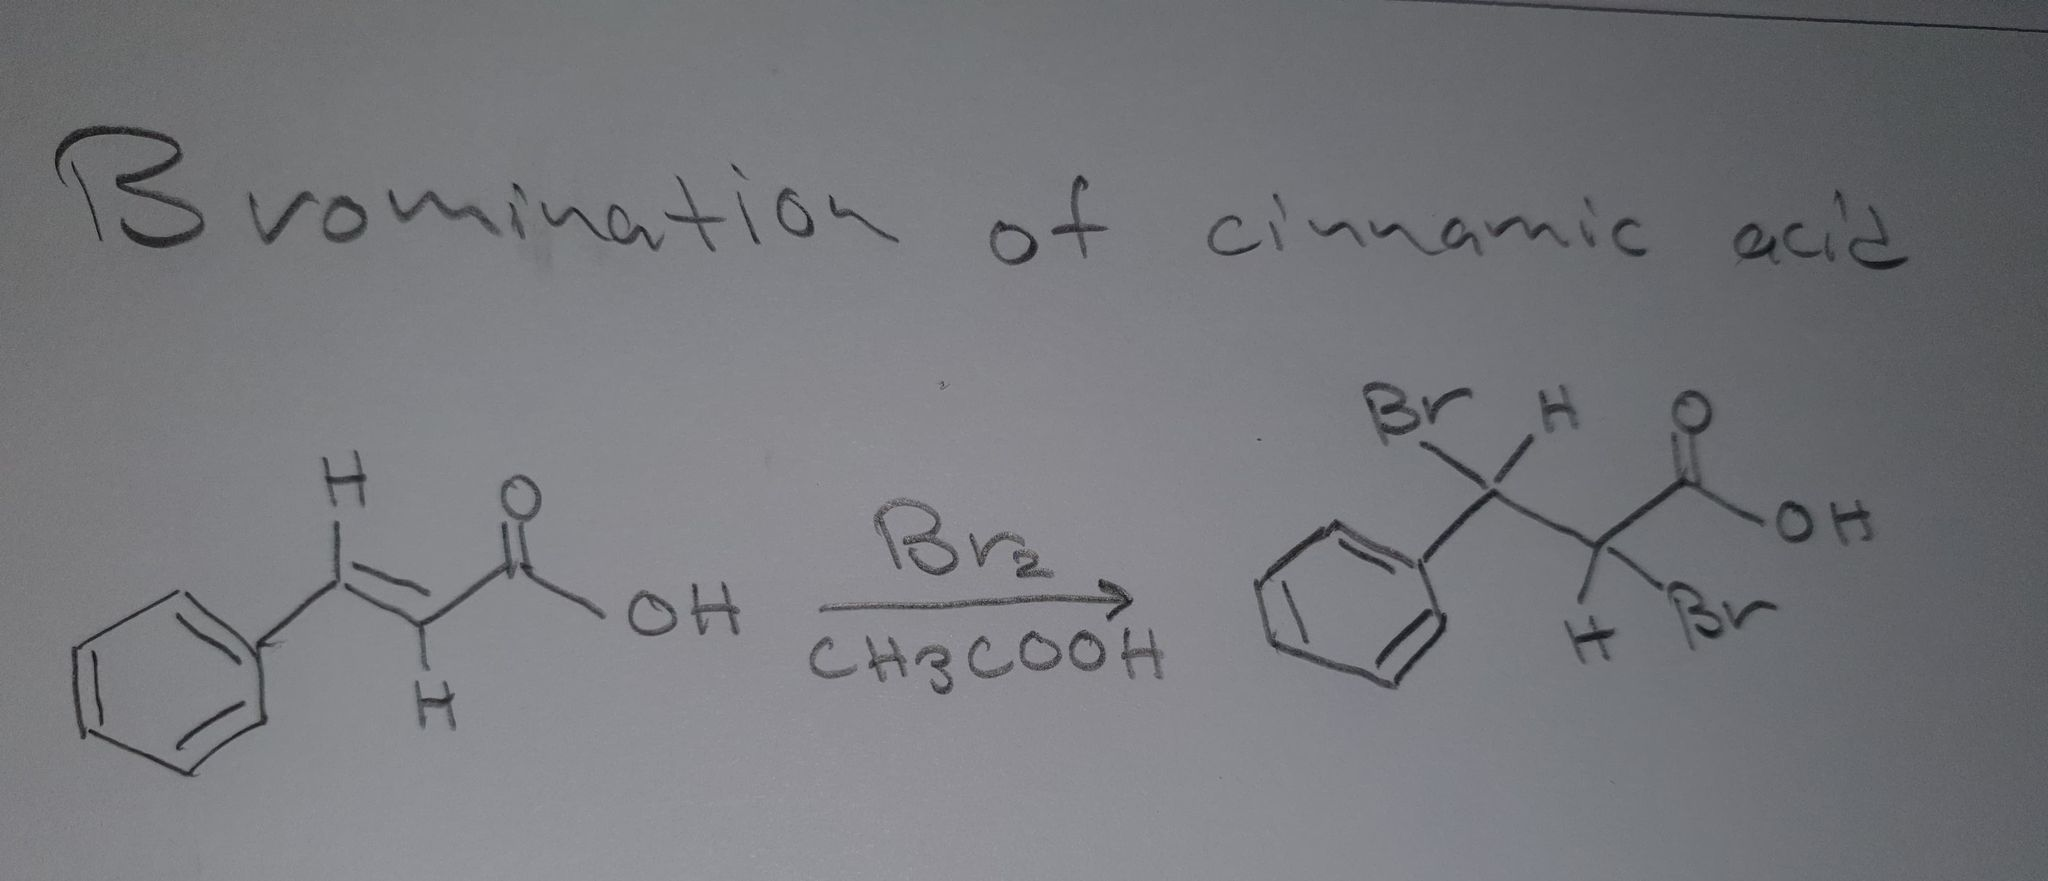 Bromination of cinnamic acid
Br H O
H O
Br2
OH
OH
CH3COOH
H Br
H